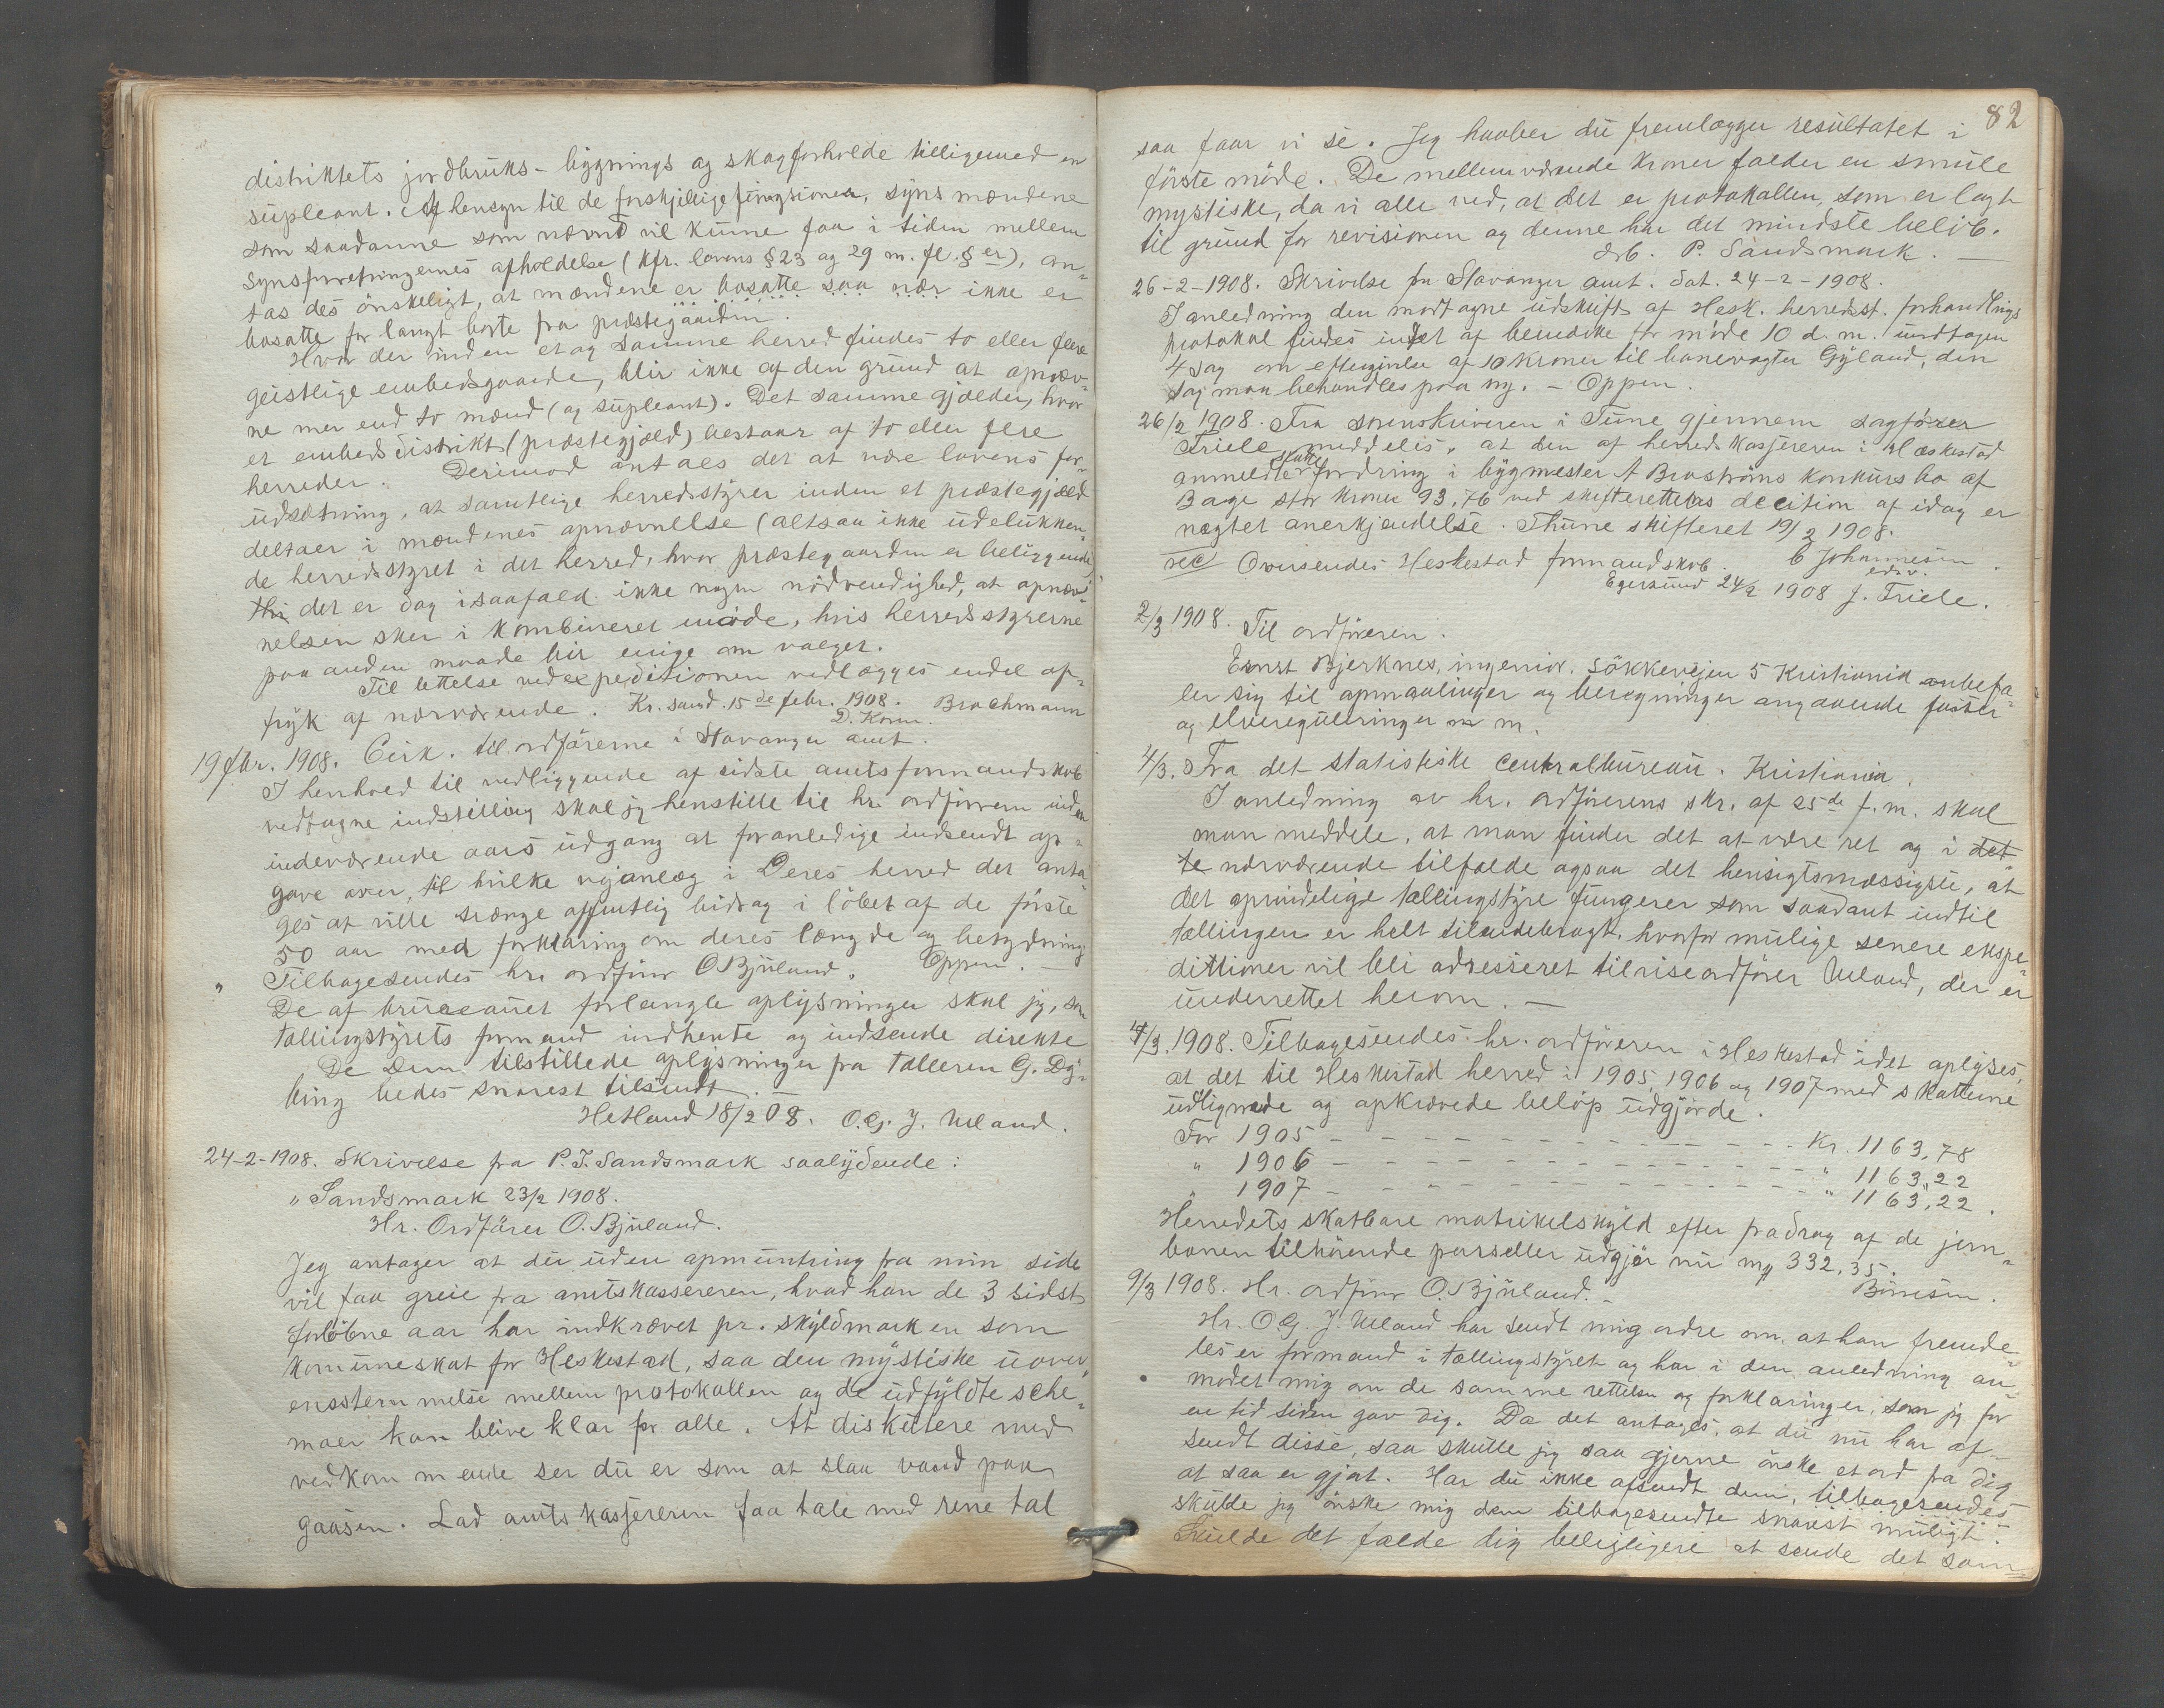 distriktets jordbruks- bygnings og skogforholde tilligemed en
supleant. Af hensyn til de forskjellige fungsioner, synsmændene
som saadanne som nævnt vil kunne faa i tiden mellem
synsforretningernes afholdelse (kfr. lovens § 23 og 29 m. fl. §er), an-
tas des ønskeligt, at mændene er bosatte saa nær ikke er
bosatte for langt borte fra præstegaarden.
Hvor der inden et og samme herred findes to eller flere
geistlige embedsgaarde, blir ikke af den grund at opnæv-
ne mer end to mænd (og supleant). Det samme gjælder, hvor
et embedsdistrikt (præstegjæld) bestaar af to eller flere
herreder. Derimod antaes det at være lovens for-
udsætning, at samtlige herredsstyrer inden et præstegjæld
deltaer i mændenes opnævnelse (altsaa ikke udelukken-
de herredsstyret i det herred, hvor præstegaarden er beliggende)
thi det er dog isaafald ikke nogen nödvendighed, at opnæv-
nelsen sker i kombineret møde, hvis herredsstyrerne
paa anden maade blir enige om valget.
Til lettelse ved expeditionen vedlægges endel af-
tryk af nærværende. Kr.sand. 15de febr. 1908. Brochmann
D. Konn.
19 fbr. 1908. Cirk. til ordførerne i Stavanger amt.
I henhold til vedliggende af sidste amtsformandskab
vedtagne indstilling skal jeg henstille til hr. ordføreren inden
indeværende aars udgang at foranledige indsendt op-
gave over, til hvilke vejanlæg i Deres herred det anta-
ges at ville trænge offentlig bidrag i löbet af de første
50 aar med forklaring om deres længde og betydning
Tilbagesendes hr. ordfører O Bjuland. Oppen. —
" De af bureauet forlangte oplysninger skal jeg, som
tællingstyrets formand indhente og indsende direkte
De Dem tilstillede oplysninger fra tælleren G. Dy-
bing bedes snarest tilsendt.
Hetland 18/2 08. O. G. J. Ueland.
24-2-1908. Skrivelse fra P. T. Sandsmark saalydende:
" Sandsmark 23/2 1908.
Hr. Ordfører O. Bjuland.
Jeg antager at du uden opmuntring fra min side
vil faa greie fra amtskassereren, hvad han de 3 sidst
forløbne aar har indkrævet pr. skyldmark en som
kommuneskat for Heskestad, saa den mystiske uover-
ensstemmelse mellem protokollen og de udfyldte sche-
maer kan blive klar for alle. At diskutere med
vedkommende ser du er som at slaa vand paa
gaasen. Lad amtskasjereren faa tale med rene tal
82
saa faar vi se. Jeg haaber du fremlægger resultatet i
förste møde. De mellemværende kroner falder en smule
mystiske, da vi alle ved, at det er protokollen, som er lagt
til grund for revisionen og denne har det mindste belöb.
drb. P. Sandsmark. —
26-2-1908. Skrivelse fra Stavanger amt. dat. 24-2-1908.
I anledning den modtagne udskrift af Hesk. herredsst. forhandlings
protokol findes intet at bemærke for møde 10 d. m. undtagen
4 sag om eftergivelse af 10 kroner til banevogter Gyland, den
sag maa behandles paa ny. — Oppen.
26/2 1908. Fra sorenskriveren i Tune gjennem sagfører
Triele meddeles, at den af herredskasjereren i Heskestad
anmeldte skattefordring i bygmester A Broströms konkursbo af
Bage stor kroner 93,76 ved skifterettens decition af idag er
nægtet anerkjendelse. Thune skifteret 19/2 1908.
C Johannesen.
Oversendes Heskestad formandskab. edsv.
Egersund 24/2 1908 J. Triele.
2/3 1908. Til ordføreren.
Ernst Bjerknes, ingeniør. Sökkevejen 5 Kristiania anbefa-
ler sig til opmaalinger og beregninger angaaende fosser
og elvereguleringer m m.
4/3. Fra det statistiske centralbureau. Kristiania.
I anledning av hr. ordførerens skr. af 25de f. m. skal
man meddele, at man finder det at være ret og i det
te nærværende tilfælde ogsaa det hensigtsmæssigste, at
det oprindelige tællingstyre fungerer som saadant indtil
tællingen er helt tilendebragt, hvorfor mulige senere ekspe-
ditioner vil bli adresseret til viseordfører Ueland, der er
underrettet herom. —
4/3. 1908. Tilbagesendes hr. ordføreren i Heskestad idet oplyses,
at det til Heskestad herred i 1905, 1906 og 1907 med skatterne
udlignede og opkrævede beløp udgjorde.
For 1905 — — — — — — — — — Kr. 1163,78
" 1906 — — — — — — — — — " 1163,22
" 1907 — — — — — — — — — " 1163,22.
Herredets skatbare matrikelskyld efter fradrag af de jern-
banen tilhørende parseller udgjør nu m/ 332,35.
Bönesen.
9/3 1908. Hr. ordfører O. Bjuland. —
Hr. O. G. J. Ueland har sendt mig ordre om, at han fremde-
les er formand i tællingstyret og har i den anledning an-
modet mig om de samme rettelser og forklaringer, som jeg for
en tid siden gav dig. Da det antages, at du nu har af-
sendt disse, saa skulle jeg saa gjerne önske et ord fra dig
at saa er gjort. Har du ikke afsendt dem, tilbagesendes
skulde jeg önske mig dem tilbagesendte snarest muligt.
Skulde det falde dig beleiligere at sende det som